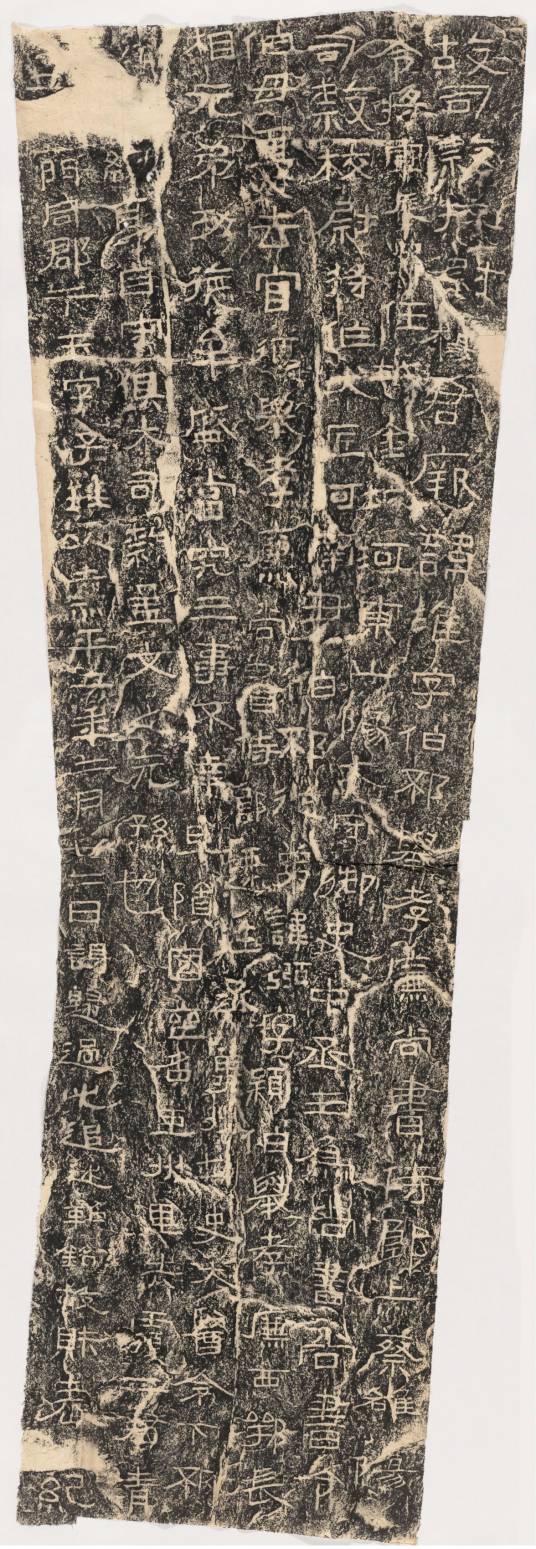 故司隸校尉楊君厥諱淮字伯邳舉孝廉尚書侍郎上蔡雒陽
令將軍長史任城金城河東山陽太守御史中丞三為尚書尚書令
司隸校尉將作大匠河南尹伯邳從弟諱弼字穎伯舉孝廉西鄂長
伯母憂去官復舉孝廉尚書侍郎遷左丞冀州刺史太醫令下邳
相元弟功德牟盛當究三事不幸早隕國喪名臣州里失覆二君清
約身自守俱大司隸孟文之元孫也
門同郡卞玉字子珪以熹平二年二月廿二日謁歸過此追述勒銘故財表紀